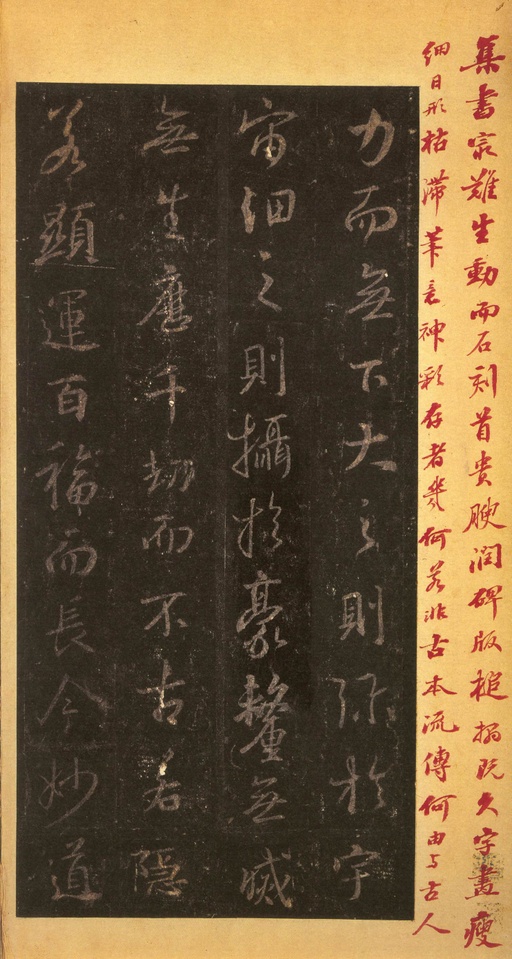 集書㝡難生動而石刻首貴腴潤碑版搥搨既久字畫瘦
細日形枯滯筆意神彩存者幾何若非古本流傳何由与古人
力而無下大之則弥於宇
宙細之則攝於豪釐無滅
無生應千劫而不古若隱
若顯運百福而長今妙道